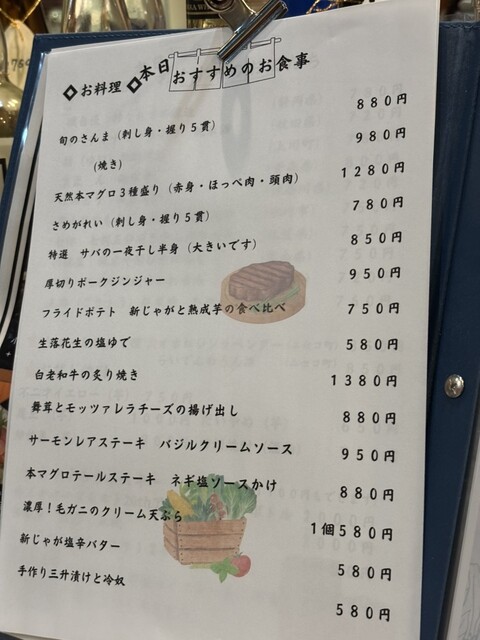 ◇お料理◇本日おすすめのお食事
旬のさんま（刺し身・握り５貫） ８８０円
（焼き） ９８０円
天然本マグロ３種盛り（赤身・ほっぺ肉・頭肉） １２８０円
さめがれい（刺し身・握り５貫） ７８０円
特選　サバの一夜干し半身（大きいです） ８５０円
厚切りポークジンジャー ９５０円
フライドポテト　新じゃがと熟成芋の食べ比べ ７５０円
生落花生の塩ゆで ５８０円
白老和牛の炙り焼き １３８０円
舞茸とモッツァレラチーズの揚げ出し ８８０円
サーモンレアステーキ　バジルクリームソース ９５０円
本マグロテールステーキ　ネギ塩ソースかけ ８８０円
濃厚！毛ガニのクリーム天ぷら １個５８０円
新じゃが塩辛バター ５８０円
手作り三升漬けと冷奴 ５８０円